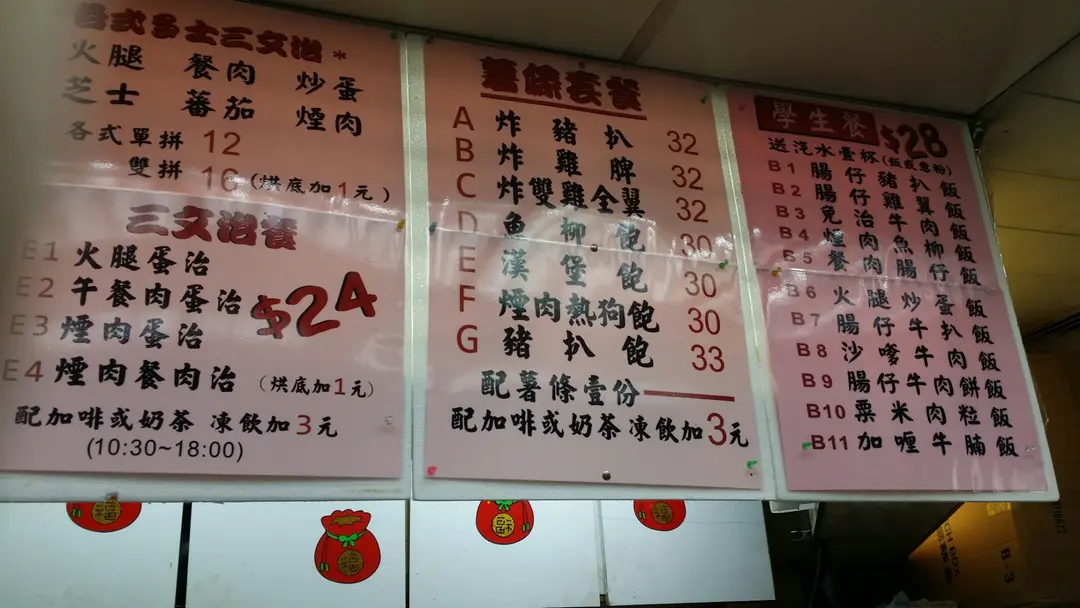 各式多士三文治 *
火腿 餐肉 炒蛋
芝士 蕃茄 煙肉
各式單拼 12
雙拼 16 (烘底加1元)
三文治餐
E1 火腿蛋治
E2 午餐肉蛋治
E3 煙肉蛋治
E4 煙肉餐肉治 (烘底加1元)
$24
配加啡或奶茶 凍飲加3元
(10:30~18:00)
薯條套餐
A 炸豬扒 32
B 炸雞脾 32
C 炸雙雞全翼 32
D 魚柳飽 30
E 漢堡飽 30
F 煙肉熱狗飽 30
G 豬扒飽 33
配薯條壹份
配加啡或奶茶凍飲加3元
學生餐 $28
送汽水壹杯(飯或意粉)
B1 腸仔豬扒飯
B2 腸仔雞翼飯
B3 免治牛肉飯
B4 煙肉魚柳飯
B5 餐肉腸仔飯
B6 火腿炒蛋飯
B7 腸仔牛扒飯
B8 沙嗲牛肉飯
B9 腸仔牛肉餅飯
B10 粟米肉粒飯
B11 加喱牛腩飯
福
福
福
B-3